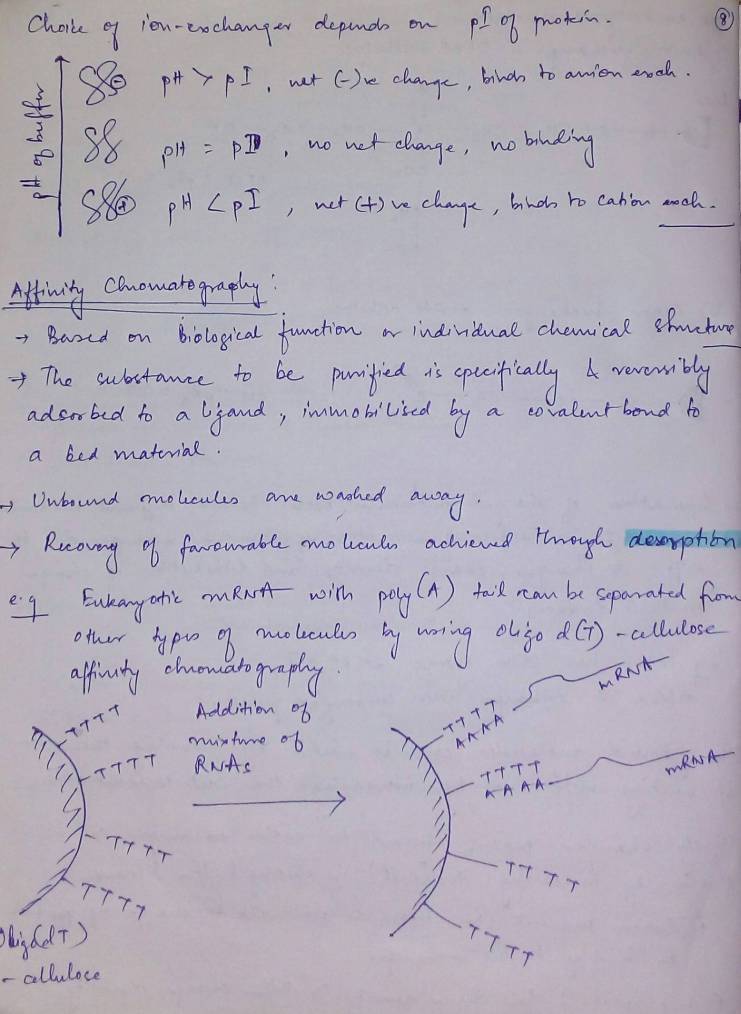 Choice of ion-exchanger depends on pI of protein.
8
pH of buffer
pH > pI, net (-)ve charge, binds to anion exch.
pH = pI, no net charge, no binding
pH < pI, net (+)ve charge, binds to cation exch.
Affinity Chromatography:
→ Based on Biological function or individual chemical structure
→ The substance to be purified is specifically & reversibly
adsorbed to a ligand, immobilised by a covalent bond to
a bed material.
→ Unbound molecules are washed away.
→ Recovery of favourable molecules achieved through desorption
e.g Eukaryotic mRNA with poly(A) tail can be separated from
other types of molecules by using oligo d(T) - cellulose
affinity chromatography.
TTTT
TTTT
TTTT
TTTT
Oligo(dT)
- cellulose
Addition of
mixture of
RNAs
TTTT
AAAA
mRNA
TTTT
AAAA
mRNA
TTTT
TTTT